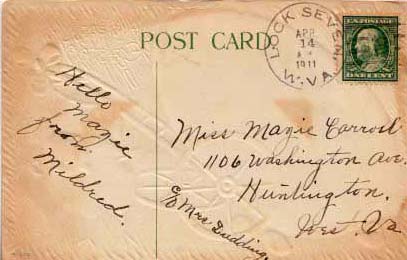 POST CARD
LOCK SEVEN
APR
14
1911
W.VA.
U.S. POSTAGE
ONE CENT
Hello
Magie
from
Mildred.
Miss Magie Carroll
1106 Washington Ave.
Huntington,
West. Va
C/o Mrs Dudding,